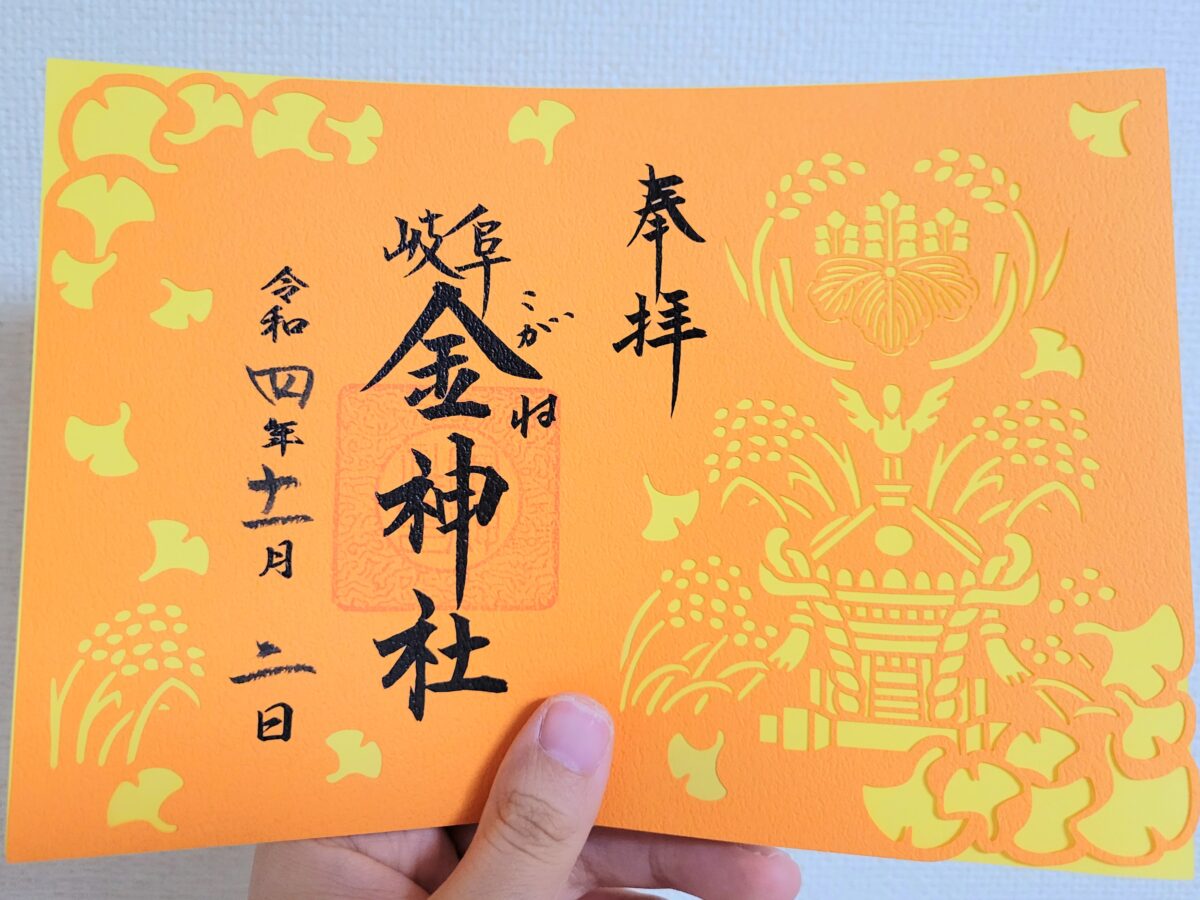 奉拝
岐阜
金神社
こがね
令和四年十一月二日